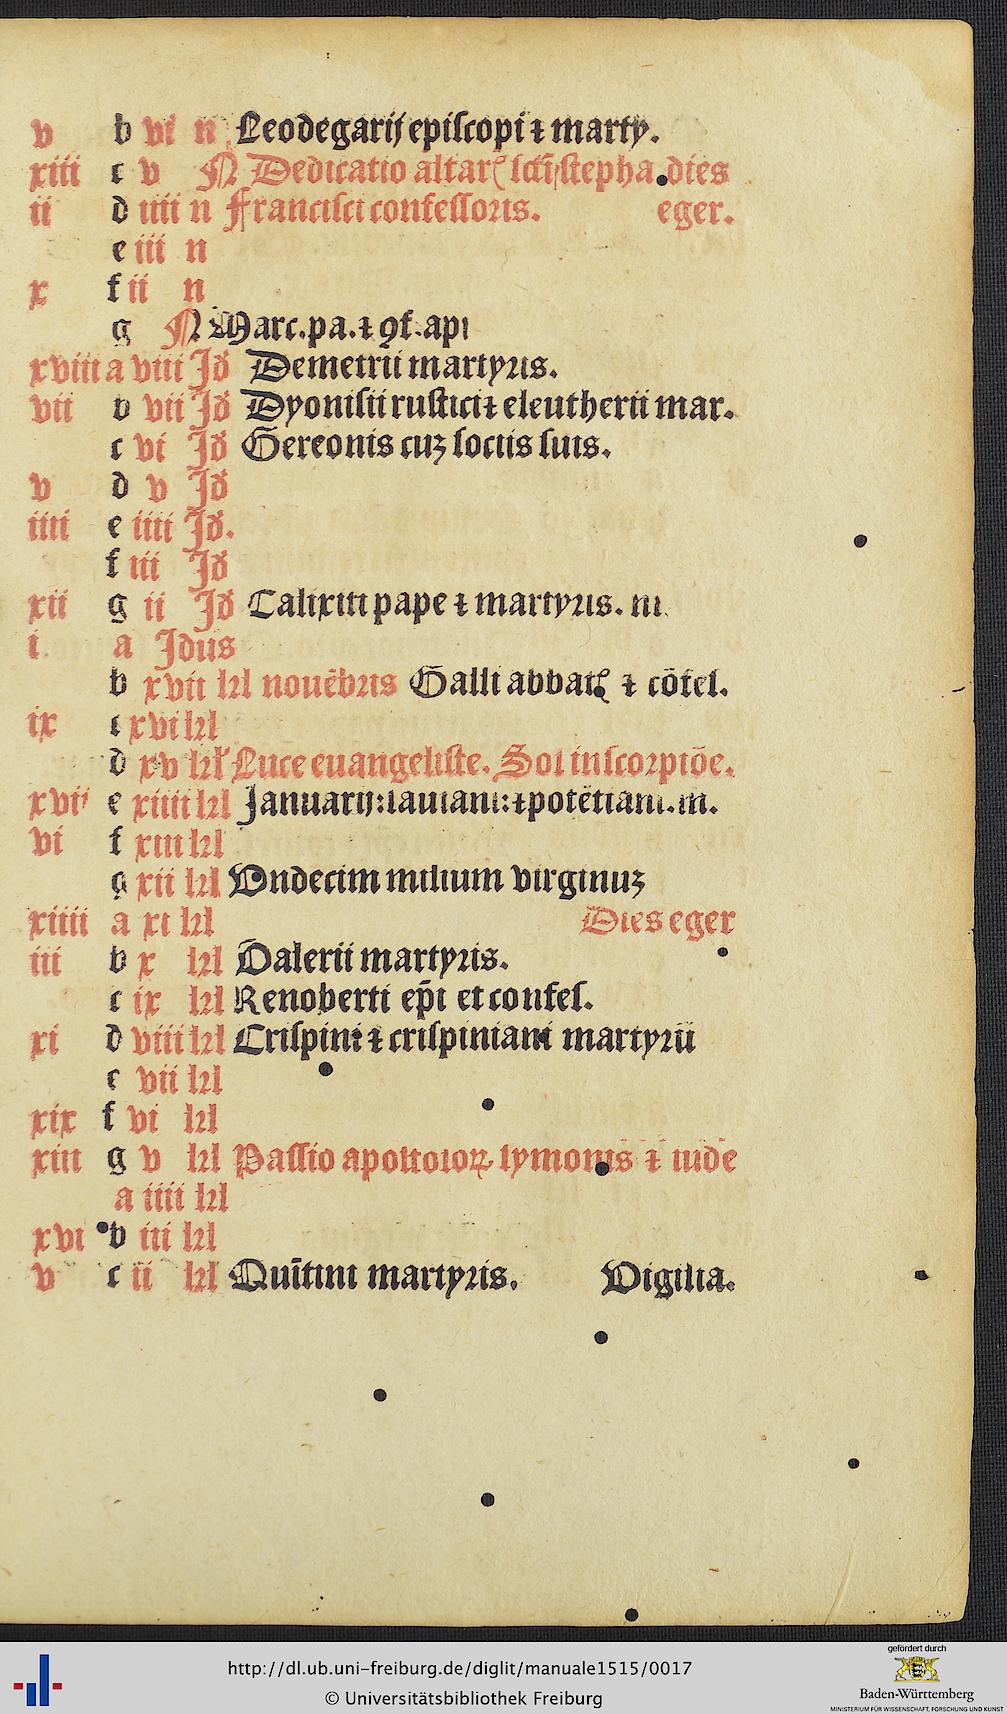 v b vi n Leodegarij episcopi ⁊ marty.
xiii c v N Dedicatio altarꝭ sctī stepha. dies
ii d iiii n Francisci confessoris. eger.
e iii n
x f ii n
g N Marc. pa. ⁊ ꝯf. api
xviii a viii Id Demetrii martyris.
vii b vii Id Dyonisii rustici ⁊ eleutherii mar.
c vi Id Gereonis cuꝫ sociis suis.
v d v Id
iiii e iiii Id.
f iii Id
xii g ii Id Calixti pape ⁊ martyris. iii
i a Idus
b xvii kl novēbris Galli abbatꝭ ⁊ cōfes.
ix c xvi kl
d xv kl Luce euangeliste. Sol in scorpiōe.
xvii e xiiii kl Januarij: ianiani: ⁊ potētiani. m.
vi f xiii kl
g xii kl Undecim milium virginuꝫ
xiiii a xi kl Dies eger
iii b x kl Valerii martyris.
c ix kl Renoberti epī et confes.
xi d viii kl Crispini ⁊ crispiniani martyrū
e vii kl
xix f vi kl
xiii g v kl Passio apostoloꝝ symonis ⁊ iude
a iiii kl
xvi b iii kl
v c ii kl Quītini martyris. Vigilia.
http://dl.ub.uni-freiburg.de/diglit/manuale1515/0017
© Universitätsbibliothek Freiburg
gefördert durch
Baden-Württemberg
MINISTERIUM FÜR WISSENSCHAFT, FORSCHUNG UND KUNST